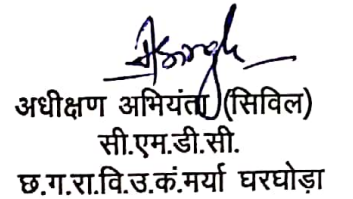 अधीक्षण अभियंता (सिविल)
सी.एम.डी.सी.
छ.ग.रा.वि.उ.कं.मर्या घरघोड़ा